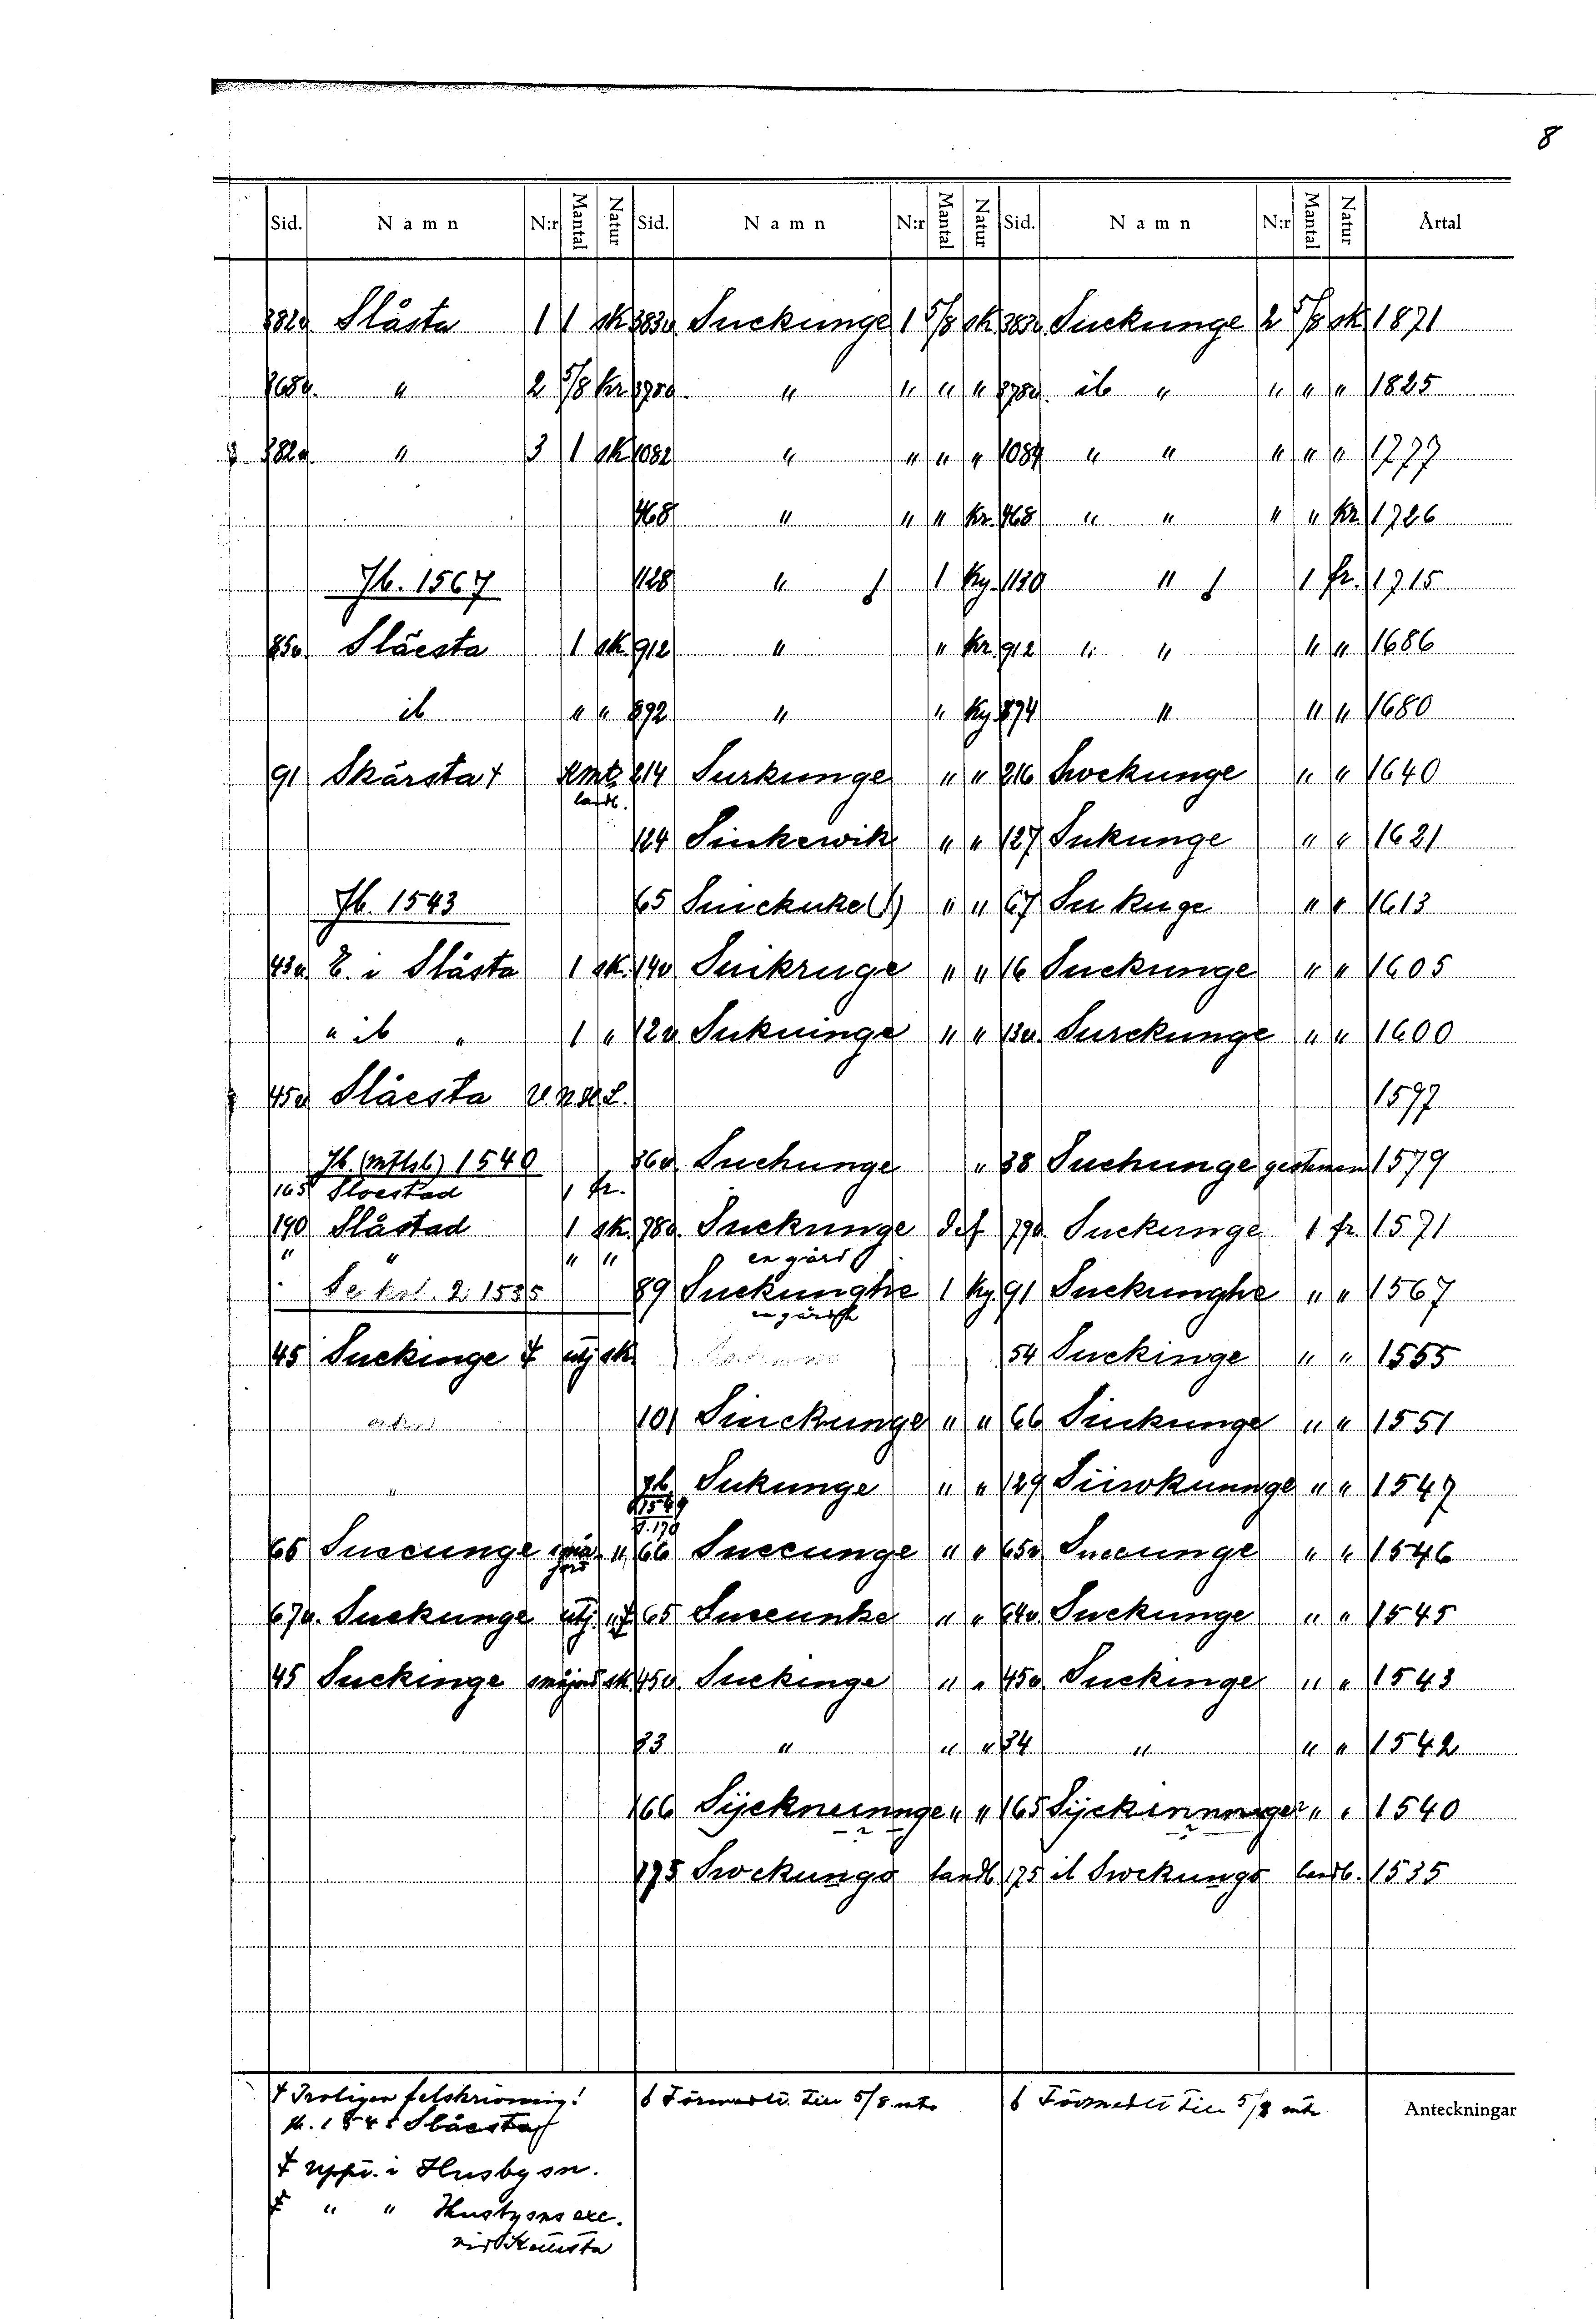 8
Sid. Namn N:r Mantal Natur Sid. Namn N:r Mantal Natur Sid. Namn N:r Mantal Natur Årtal
382a Slåsta 1 1 sk 383a Suckunge 1 5/8 sk 383a Suckunge 2 5/8 sk 1871
" 2 5/8 kr. " " " " ib " " " " 1825
" 3 1 sk 1082 " " " " 1084 " " " " " 1777
468 " " " kr. 468 " " " " kr. 1726
Jb. 1567 1128 " 1 kg. 1130 " 1 fr. 1715
85a Slåesta 1 sk. 912 " " kr. 912 " " " " 1686
ib " " 892 " " kg 894 " " " 1680
91 Skårsta † landb. 214 Surkunge " " 216 Swckunge " " 1640
124 Sinkewik " " 127 Sukunge " " 1621
Jb. 1543 65 Suickuke(!) " " 67 Su kuge " " 1613
43a E. i Slåsta 1 sk. 14a Suikruge " " 16 Suckunge " " 1605
" ib " 1 " 12a Sukuinge " " 13a. Surckunge " " 1600
45a Slåesta 1597
1540 36a Suchunge " 38 Suchunge 1579
165 Sloestad 1 fr.
190 Slåstad 1 sk. 78a. Suckunge def 79a. Suckunge 1 fr 1571
" " " " en gård
2 1535 89 Suckunghe 1 kg 91 Suckunghe " " 1567
45 Suckinge ‡ utj sk 54 Suckinge " " 1555
101 Sinckunge " " 66 Sinkunge " " 1551
" Jb Sukunge " " 129 Siiwkunnge " " 1547
1549
66 Succunge " 66 Succunge " " 65a Succunge " " 1546
67a. Suckunge utj. " 65 Succunke " " 64a Suckunge " " 1545
45 Suckinge småjord sk. 45a Suckinge " " 45a Suckinge " " 1543
33 " " " 34 " " " 1542
166 Sijckneunnge " " 165 Sijckinnnge " " 1540
175 Swckungo landb. 175 ib Swckungo landb. 1535
† Troligen felskrivning! 6 Förmedl. till 5/8 mtr 6 Förmedlt till 5/8 mtr Anteckningar
1545 Slåesta
‡ Uppt. i Husby sn.
" " Husbysns exc.